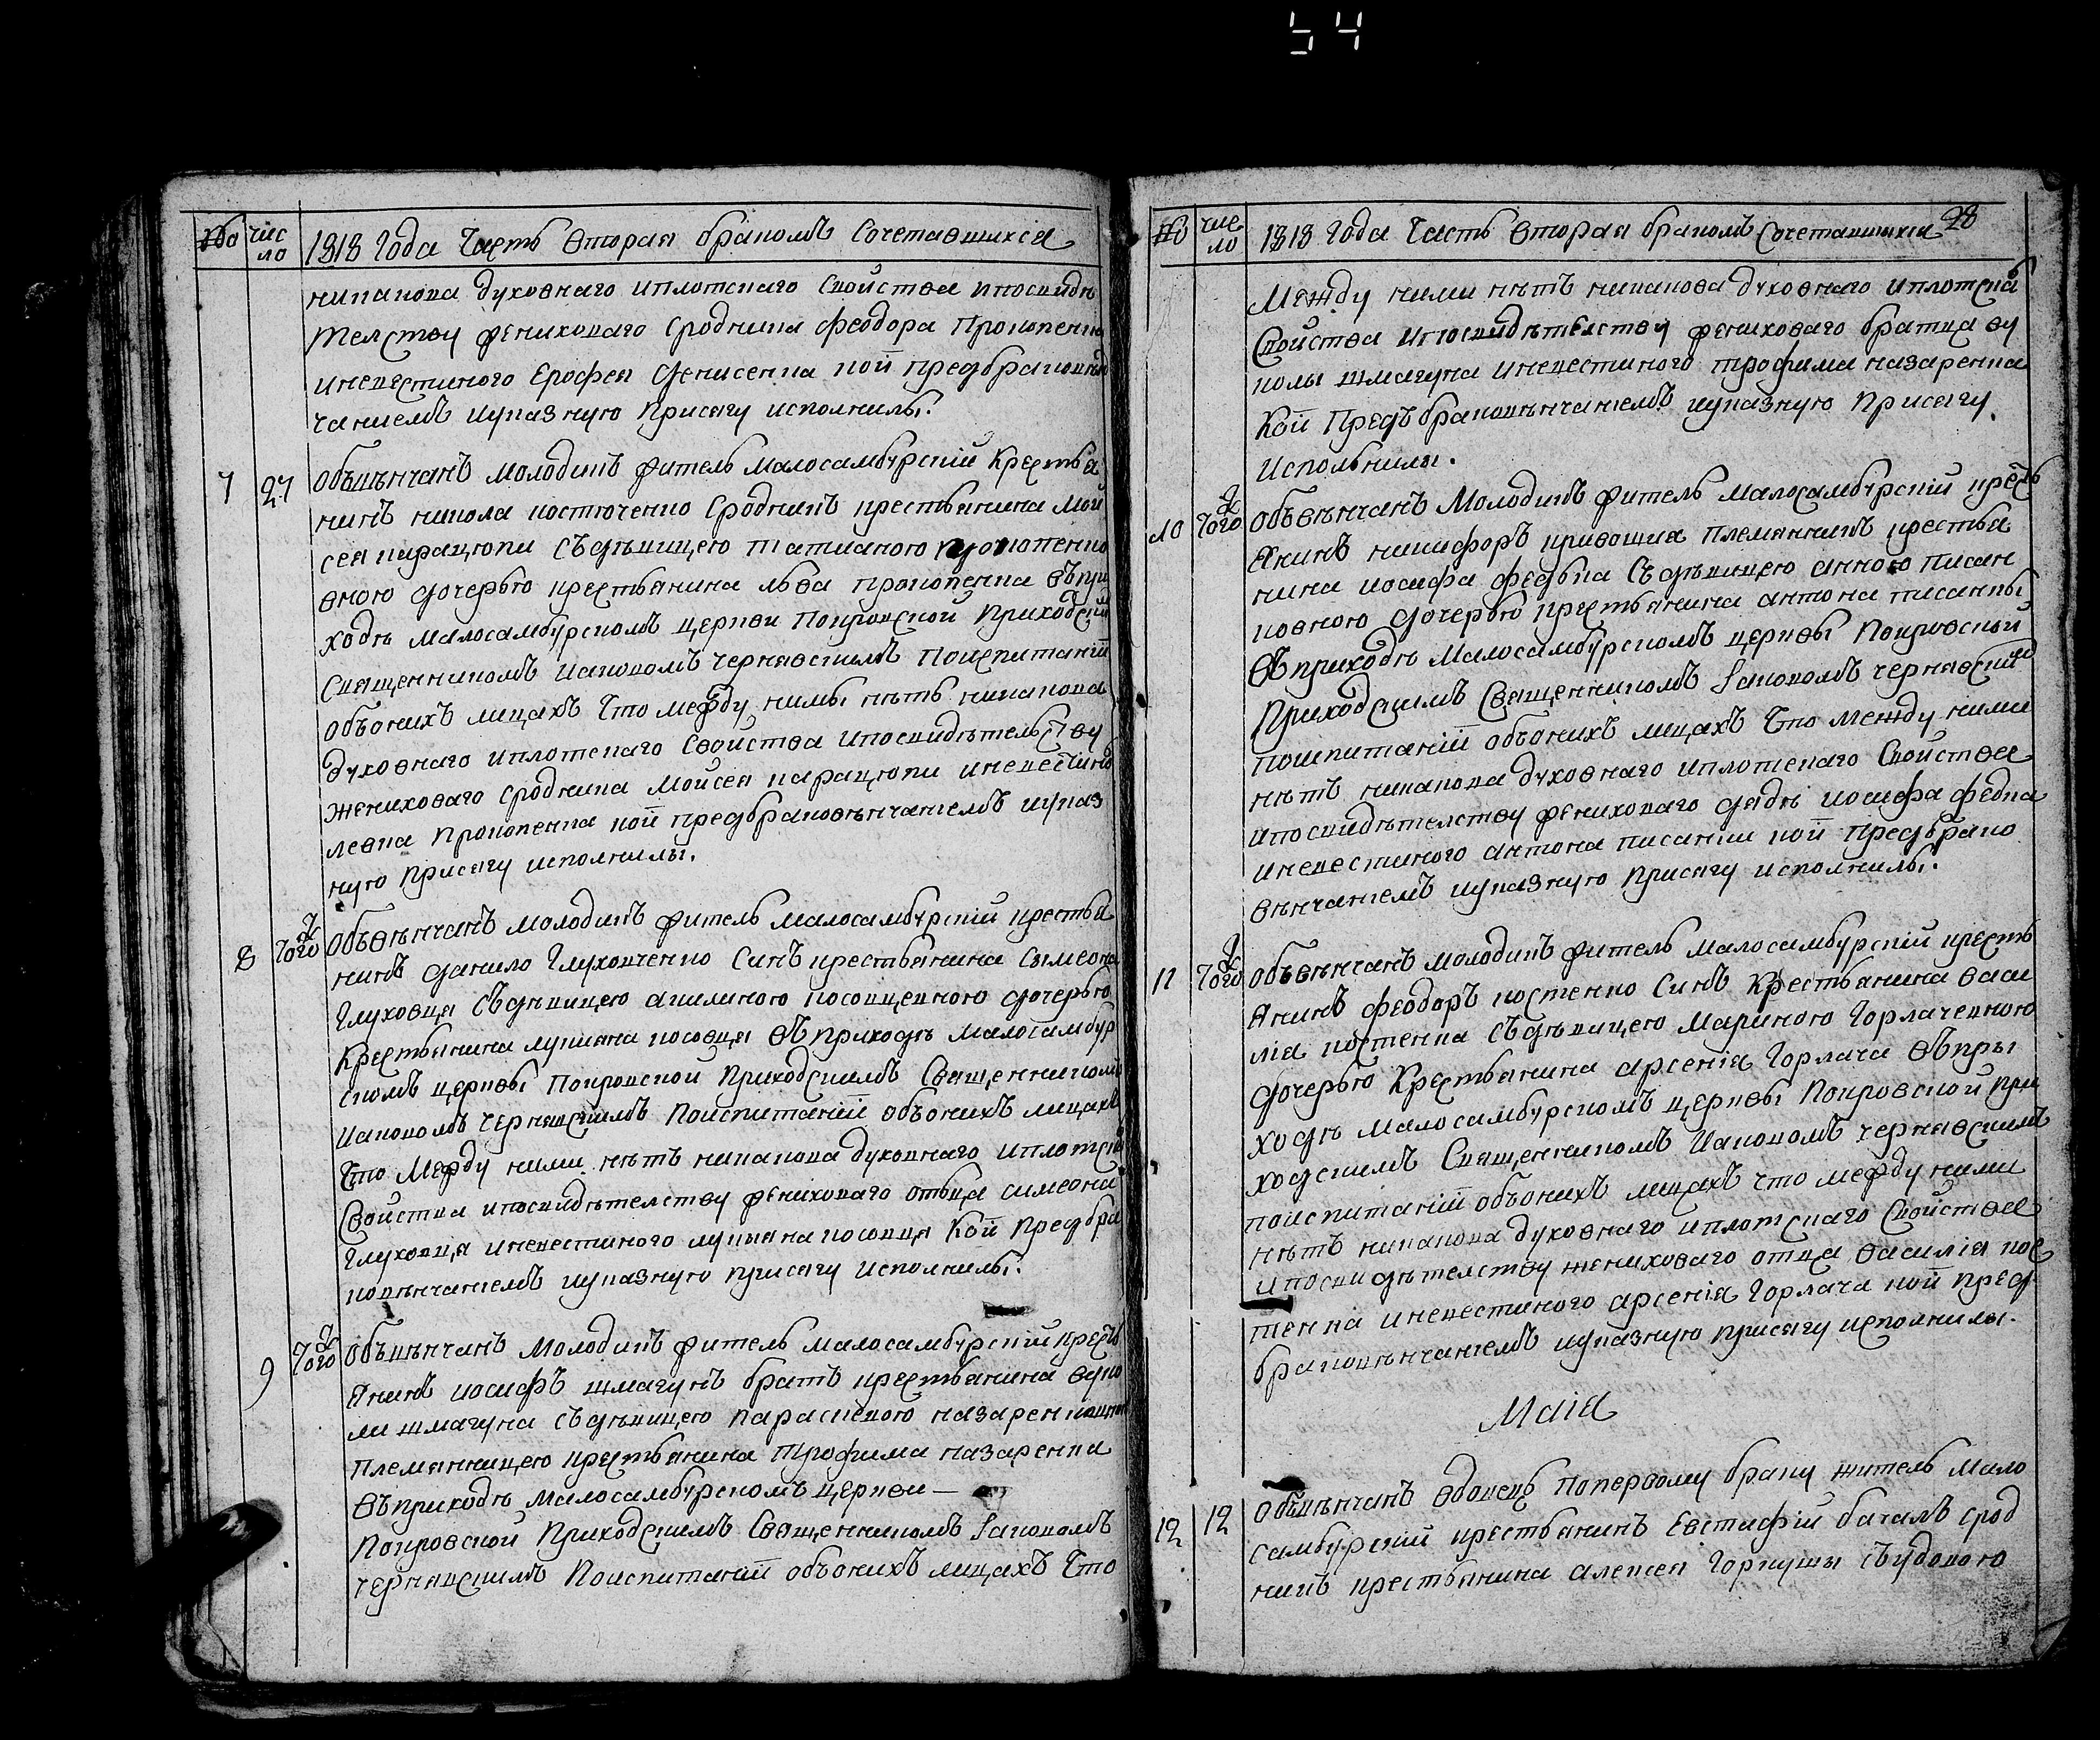 54
№ чис ло 1818 Года Часть Вторая бракомъ Сочетавшихся
никакова духовнаго иплотскаго Свойства ипосвидѣ
телству жениховаго Сродника Феодора Прокопенка
иневестиного Ерофея Денисенка кой предбраковѣн
чаниемъ иуказную присягу исполнилы.
7 27 Объвѣнчанъ молодикъ житель малосамбурскій Крестья
нинъ никола костюченко Сродникъ крестьянина Мой
сея карацюпи Съдѣвицею татианою прокопенко
вною дочерью крестьянина льва прокопенка въпри
ходѣ малосамбурскомъ церкви Покровской Приходским
Священникомъ Иаковомъ Чернявскимъ Поиспитаніи
объонихъ лицахъ Что между нимы нѣтъ никакова
духовнаго иплотскаго Свойства ипосвидѣтельству
жениховаго сродника Мойсея карацюпи иневестино
левка Прокопенка кой предбраковѣнчаніемъ иуказ
ную присягу исполнилы.
8 Того ж Объвѣнчанъ молодикъ житель малосамбурскій крестья
нинъ данило Глуховченко Синъ крестьянина Симеона
Глуховця Съдѣвицею акилиною косовцевною дочерью
Крестьянина лукиана косовця Въприходѣ Малосамбур
скомъ церквы Покровской Приходскимъ Священникомъ
Иаковомъ Чернявскимъ Поиспитаніи объонихъ лицахъ
Что Между ними нѣтъ никакова духовнаго иплотска
Свойства ипосвидѣтелству жениховаго отъца симеона
Глуховця иневестиного лукияна косовця Кой Предбра
ковѣнчаніемъ иуказную присягу исполнилы.
9 Того ж Объвѣнчанъ Молодикъ житель малосамбурскій крестъ
янинъ иосифъ шмагунъ братъ крестьянина вуко
ли шмагуна съдѣвицею параскевою назаренковною
племянницею крестьянина трофима назаренка
Въприходѣ малосамбурскомъ церкви —
Покровской Приходскимъ Священникомъ Іаковомъ
чернявскимъ Поиспитаніи объонихъ лицахъ Что
№ чис ло 1818 Года Часть Вторая бракомъ Сочетавшихся 28
Между ними нѣтъ никакова духовнаго иплотска
Свойства ипосвидѣтелству жениховаго братца ву
колы шмагуна иневестиного трофима назаренка
Кой Предъбраковѣнчаніемъ иуказную Присягу
Испольнилы.
10 Того ж Объвѣнчанъ Молодикъ житель малосамбурскій кресть
янинъ никифоръ кривошия племянникъ крестья
нина иосифа федька Съдѣвицею анною писан
ковною дочерью крестьянина антона писанкы
Въприходѣ Малосамбурскомъ церквы Покровской
Приходскимъ Священникомъ Іаковомъ чернявским
поиспитаніи объонихъ лицахъ Что между ними
нѣтъ никакова духовнаго иплотскаго Свойства
ипосвидѣтелству жениховаго дядѣ иосифа федка
иневестиного антона писанки кой предбрако
вѣнчаніемъ иуказную присягу исполнилы.
11 Того ж Объвѣнчанъ молодикъ житель малосамбурскій кресть
янинъ Феодоръ костенко Синъ Крестьянина васи
лія костенка Съдѣвицею Мариною Горлачевною
дочерью Крестьянина арсенія Горлача въпры
ходѣ малосамбурскомъ церквы Покровской при
ходскимъ Священникомъ Иаковомъ чернявскимъ
поиспитаніи объонихъ лицахъ что между ними
нѣтъ никакова духовнаго иплотскаго Свойства
ипосвидѣтелству жениховаго отца василія кос
тенка иневестиного арсенія Горлача кой пред
браковѣнчаніемъ иуказную присягу исполнилы.
Маія
12 12 Объвѣнчанъ вдовецъ поперьвому браку житель мало
самбурскій крестьянинъ Евстафій бакалъ срод
никъ крестьянина алексея Горкушы съудовою